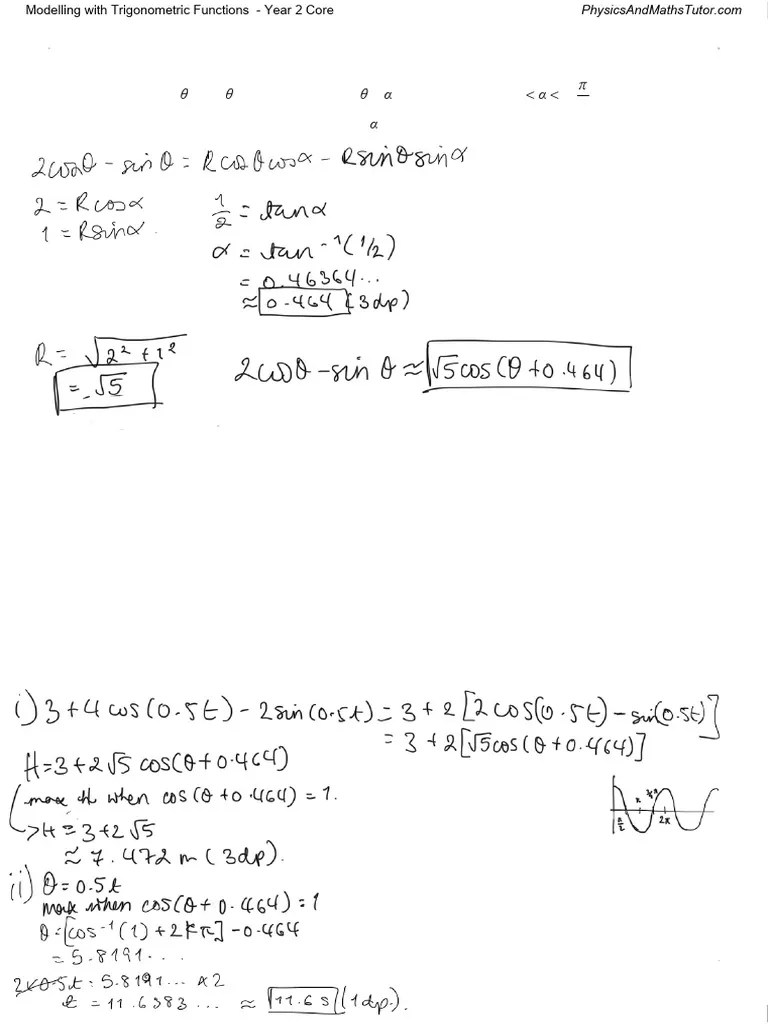 Modelling with Trigonometric Functions - Year 2 Core
PhysicsAndMathsTutor.com
θ θ θ α < α < π
α
2cosθ - sinθ = Rcosθcosα - Rsinθsinα
2 = Rcosα
1 = Rsinα.
1/2 = tanα
α = tan⁻¹(1/2)
= 0.46364...
≈ 0.464 (3dp)
R = √2² + 1²
= √5
2cosθ - sinθ ≈ √5cos(θ + 0.464)
i) 3 + 4cos(0.5t) - 2sin(0.5t) = 3 + 2[2cos(0.5t) - sin(0.5t)]
= 3 + 2[√5cos(θ + 0.464)]
H = 3 + 2√5 cos(θ + 0.464)
max H when cos(θ + 0.464) = 1.
→ H = 3 + 2√5
≈ 7.472 m (3dp).
π/2 π 2π
ii) θ = 0.5t
max when cos(θ + 0.464) = 1
θ = [cos⁻¹(1) + 2π] - 0.464
= 5.8191...
2×0.5t = 5.8191... ×2
t = 11.6383... ≈ 11.6 s (1dp.).